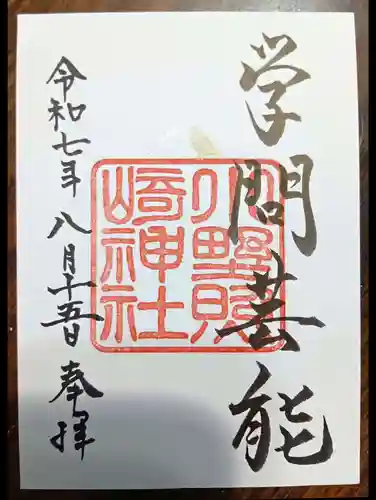 学問芸能
小野照崎神社
令和七年八月十五日奉拝